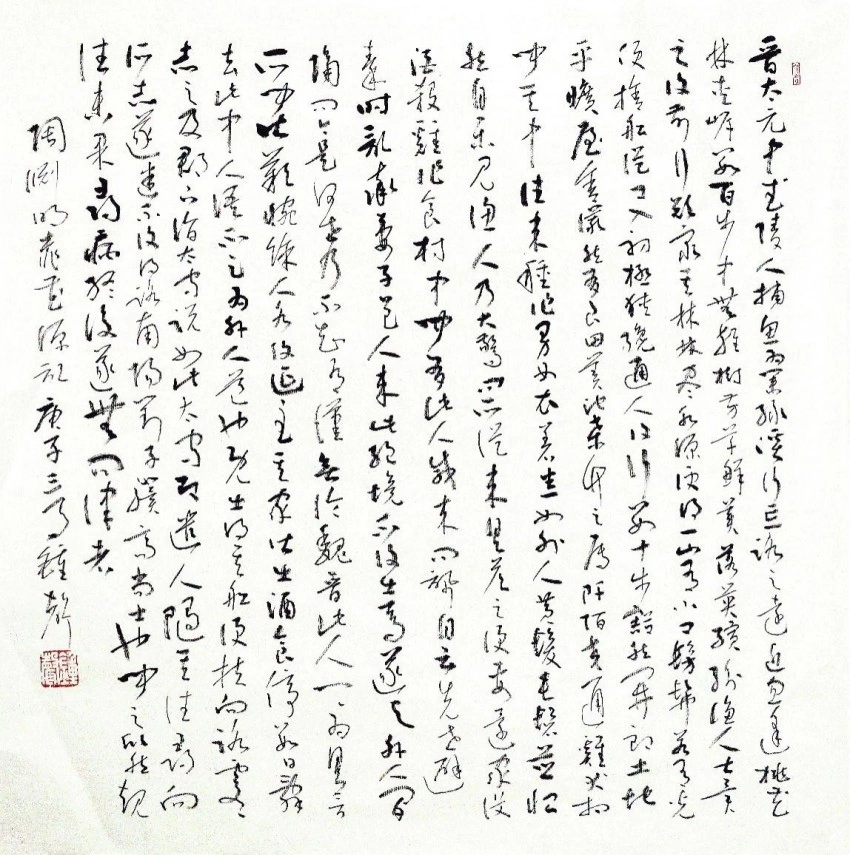 晉太元中武陵人捕魚為業緣溪行忘路之遠近忽逢桃花
林夾岸數百步中無雜樹芳草鮮美落英繽紛漁人甚異
之復前行欲窮其林林盡水源便得一山有小口髣髴若有光
便捨船從口入初極狹纔通人復行數十步豁然開朗土地
平曠屋舍儼然有良田美池桑竹之屬阡陌交通雞犬相
聞其中往來種作男女衣著悉如外人黃髮垂髫並怡
然自樂見漁人乃大驚問所從來具答之便要還家設
酒殺雞作食村中聞有此人咸來問訊自云先世避
秦時亂率妻子邑人來此絕境不復出焉遂與外人間
隔問今是何世乃不知有漢無論魏晉此人一一為具言
所聞皆歎惋餘人各復延至其家皆出酒食停數日辭
去此中人語云不足為外人道也既出得其船便扶向路處處
志之及郡下詣太守說如此太守即遣人隨其往尋向
所志遂迷不復得路南陽劉子驥高尚士也聞之欣然規
往未果尋病終後遂無問津者
陶淵明桃花源記 庚子三月 鍾聲